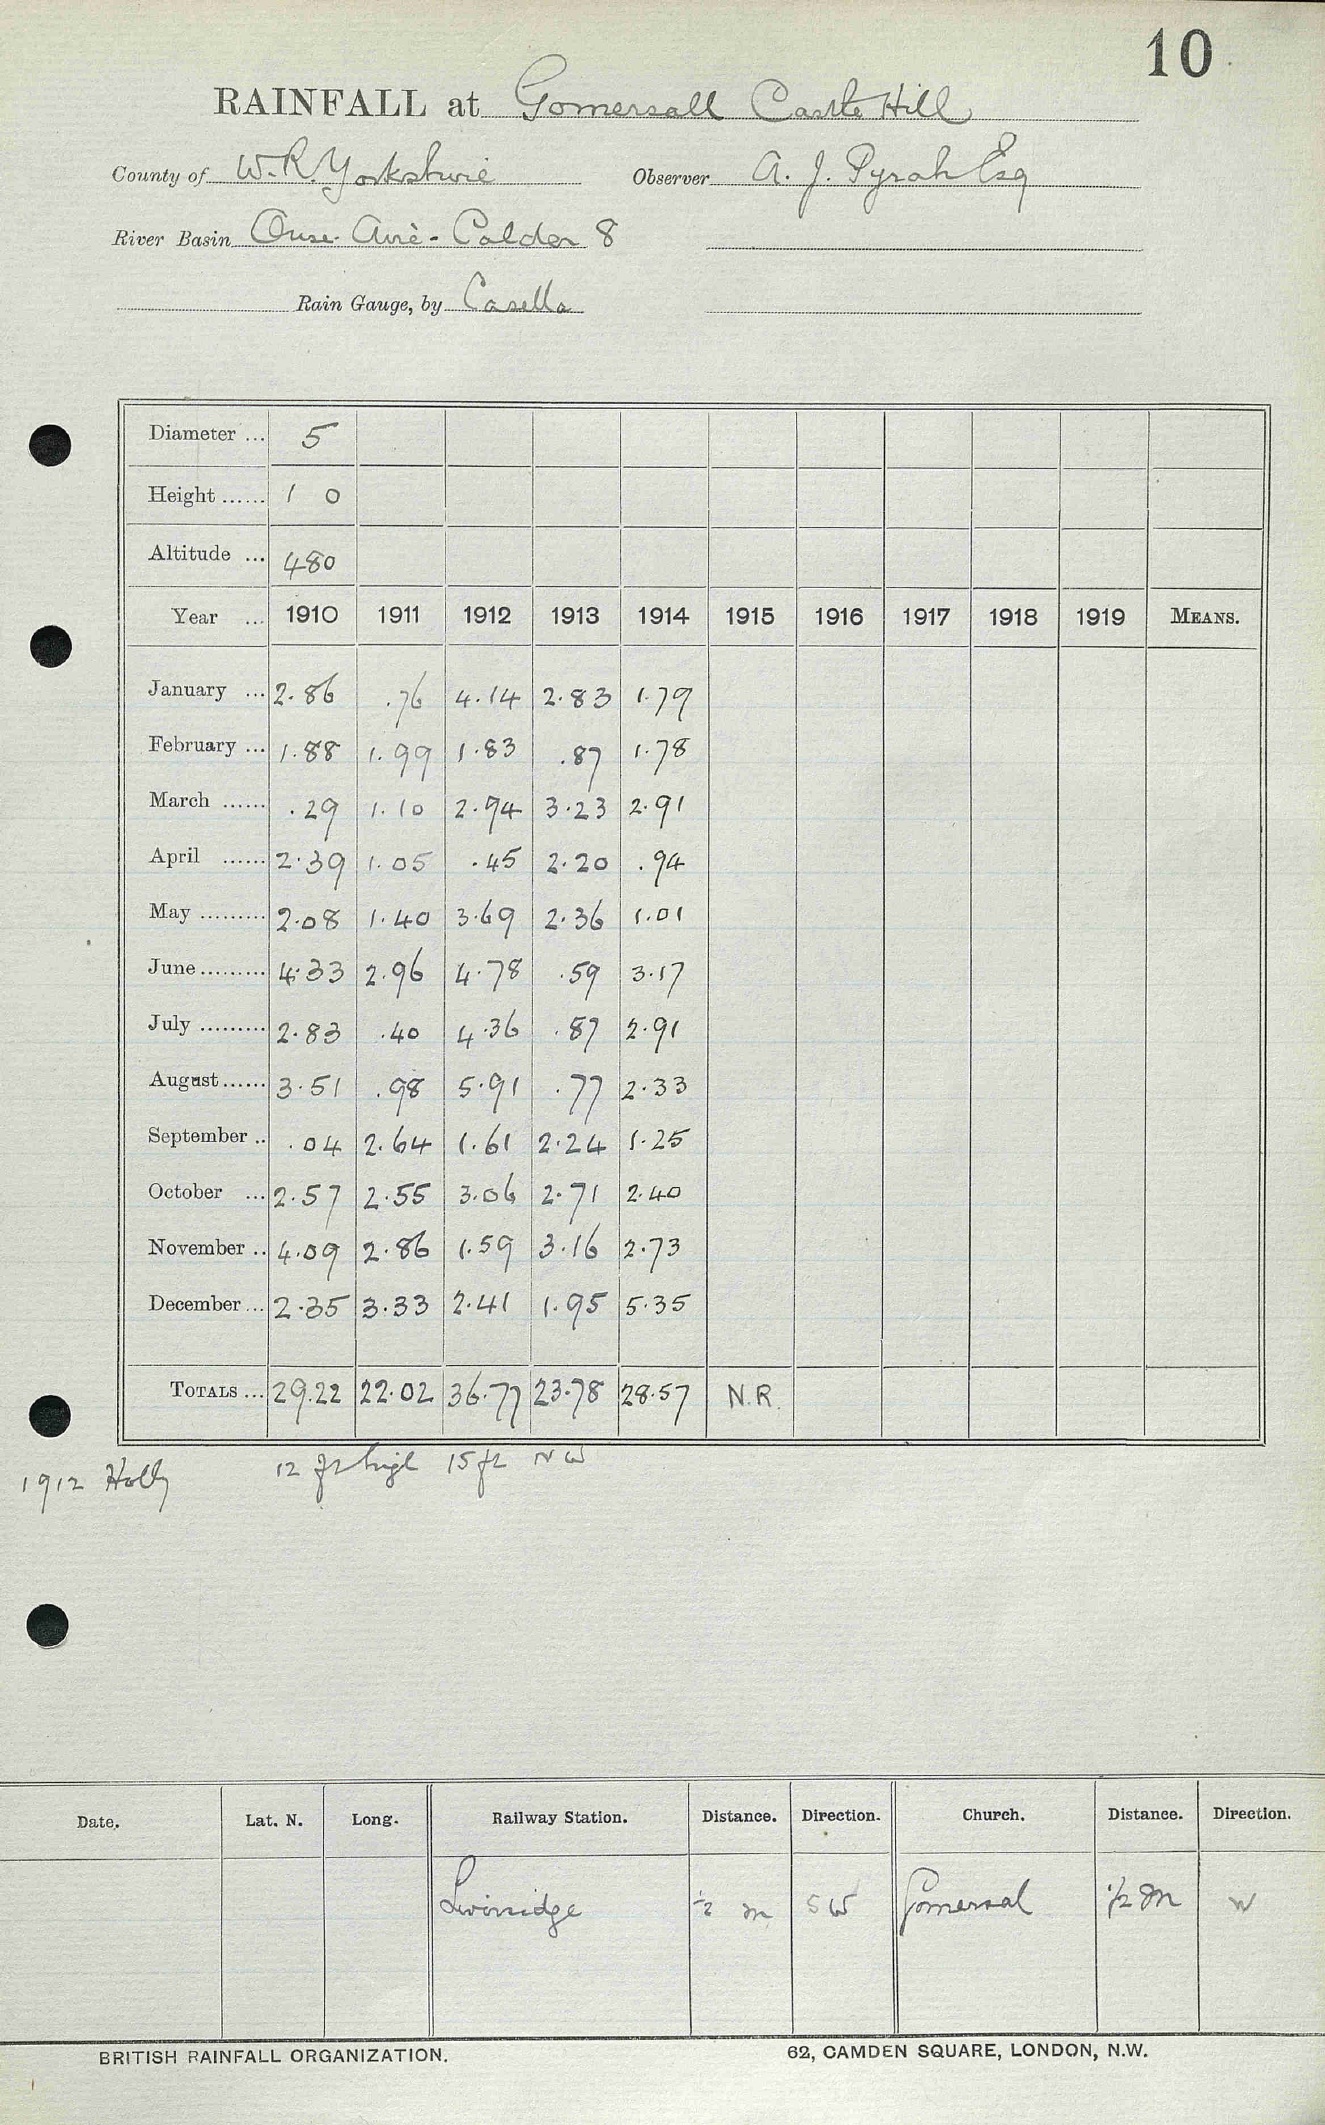 10
RAINFALL at Gomersall Castle Hill
County of W.R. Yorkshire Observer A. J. Pyrah Esq
River Basin Ouse-Aire-Calder 8
Rain Gauge, by Casella
Diameter ... 5
Height ...... 1 0
Altitude ... 480
Year ... 1910 1911 1912 1913 1914 1915 1916 1917 1918 1919 MEANS.
January ... 2.86 .76 4.14 2.83 1.79
February ... 1.88 1.99 1.83 .87 1.78
March ...... .29 1.10 2.94 3.23 2.91
April ...... 2.39 1.05 .45 2.20 .94
May ......... 2.08 1.40 3.69 2.36 1.01
June ......... 4.33 2.96 4.78 .59 3.17
July ......... 2.83 .40 4.36 .87 2.91
August ...... 3.51 .98 5.91 .77 2.33
September .. .04 2.64 1.61 2.24 1.25
October ... 2.57 2.55 3.06 2.71 2.40
November .. 4.09 2.86 1.59 3.16 2.73
December ... 2.35 3.33 2.41 1.95 5.35
TOTALS ... 29.22 22.02 36.77 23.78 28.57 N.R.
1912 Holly 12 ft high 15 ft NW
Date. Lat. N. Long. Railway Station. Distance. Direction. Church. Distance. Direction.
Liversidge ½ m SW Gomersal ½ m W
BRITISH RAINFALL ORGANIZATION. 62, CAMDEN SQUARE, LONDON, N.W.